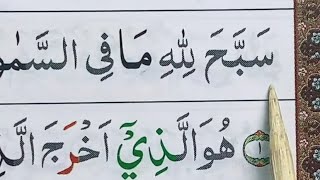 سَبَّحَ لِلّٰهِ مَا فِي السَّمٰو
١ هُوَ الَّذِيْٓ اَخْرَجَ الَّذ